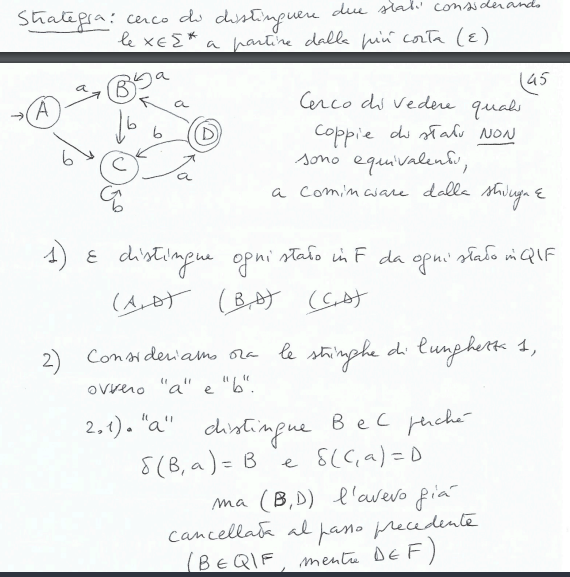 Strategia: cerco di distinguere due stati considerando
le x∈Σ* a partire dalla più corta (ε)
45
A
a
B
a
b
b
C
b
a
D
a
b
Cerco di vedere quali
coppie di stati NON
sono equivalenti,
a cominciare dalla stringa ε
1) ε distingue ogni stato in F da ogni stato in Q\F
(A,D) (B,D) (C,D)
2) Consideriamo ora le stringhe di lunghezza 1,
ovvero "a" e "b".
2.1). "a" distingue B e C perché
δ(B,a) = B e δ(C,a) = D
ma (B,D) l'avevo già
cancellata al passo precedente
(B ∈ Q\F, mentre D ∈ F)